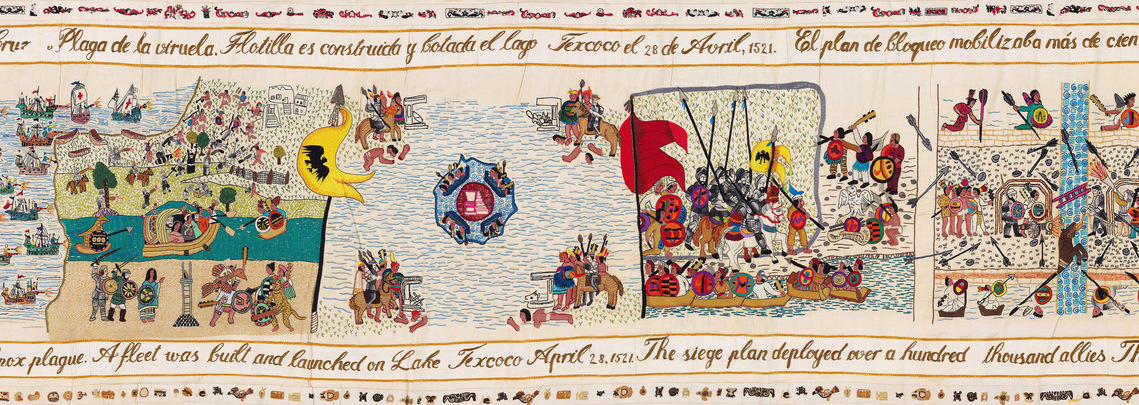 Cruz Plaga de la viruela. Flotilla es construida y botada el lago Texcoco el 28 de Avril, 1521. El plan de bloqueo mobilizaba más de cien
pox plague. A fleet was built and launched on Lake Texcoco April 28, 1521. The siege plan deployed over a hundred thousand allies Th